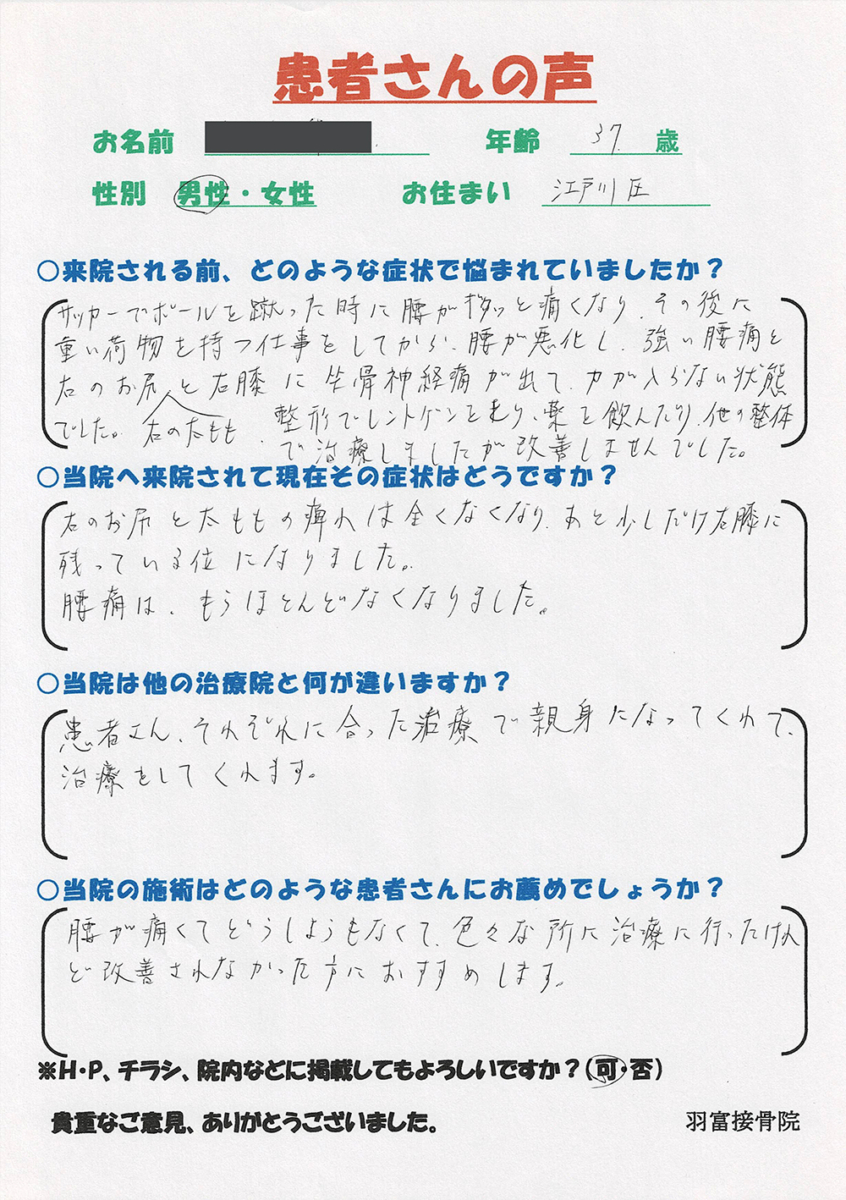 患者さんの声
お名前 年齢 37. 歳
性別 男性・女性 お住まい 江戸川区
○来院される前、どのような症状で悩まれていましたか？
サッカーでボールを蹴った時に腰が ッと痛くなり、その後に
重い荷物を持つ仕事をしてから、腰が悪化し、強い腰痛と
右のお尻と右膝に坐骨神経痛が出て、力が入らない状態
でした。 右の太もも 、整形でレントゲンを撮り、薬を飲んだり、他の整体
で治療しましたが改善しませんでした。
○当院へ来院されて現在その症状はどうですか？
右のお尻と太ももの痺れは全くなくなり、あと少しだけ右膝に
残っている位になりました。
腰痛は、もうほとんどなくなりました。
○当院は他の治療院と何が違いますか？
患者さん、それぞれに合った治療で親身になってくれて、
治療をしてくれます。
○当院の施術はどのような患者さんにお薦めでしょうか？
腰が痛くてどうしようもなくて、色々な所に治療に行ったけれ
ど改善されなかった方におすすめします。
※H・P、チラシ、院内などに掲載してもよろしいですか？（可・否）
貴重なご意見、ありがとうございました。 羽富接骨院